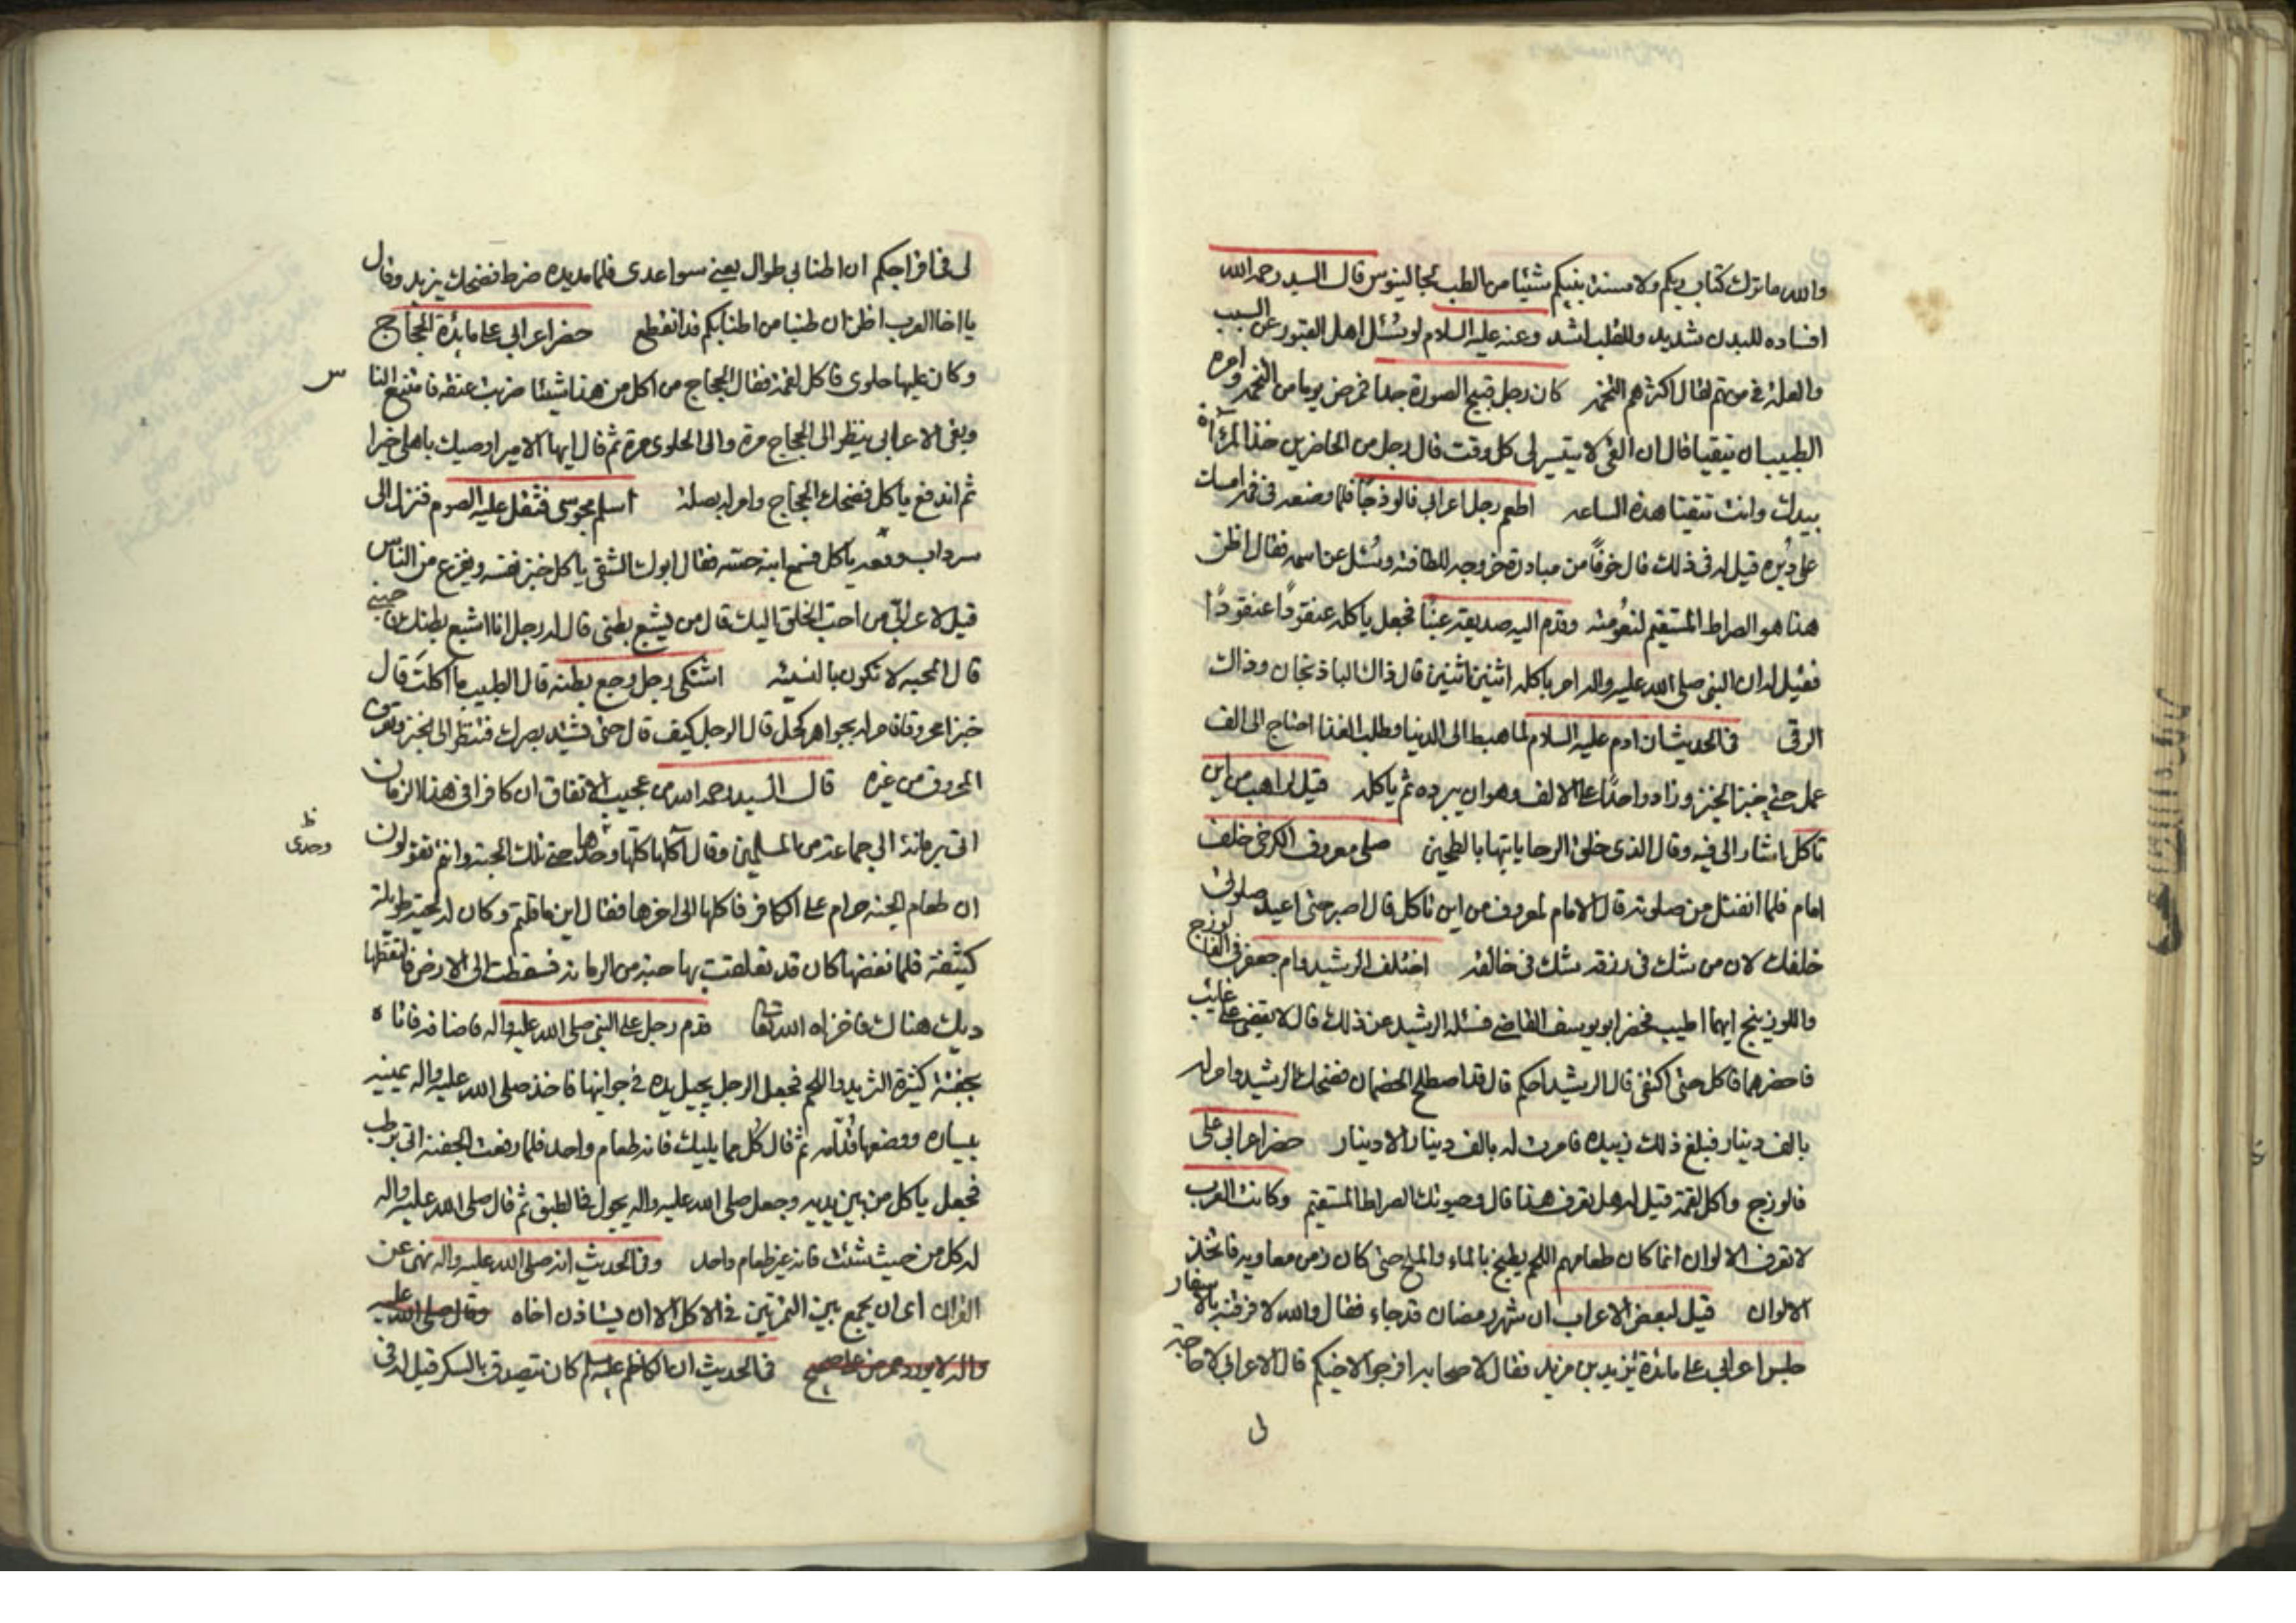 والله ما ترك كتاب ربكم ولا سنة نبيكم شيئا من الطب لجالينوس قال السيد رحمه الله
افساده للبدن شديد وللقلب اشد وعنه عليه السلام لو سُئل اهل القبور عن السبب
والعلة في موتهم لقال اكثرهم التخمه كان رجل قبيح الصورة جداً تمرض يوما من التخمه وامره
الطبيب ان يتقيا فقال ان القئ لا يتيسر لى كل وقت قال رجل من الحاضرين خذ المرآة
بيدك وانت تتقيا هذه الساعه اطعم رجل اعرابي فالوذجًا فلما وضعه فى فمه امسك
على دبره قيل له فى ذلك قال خوفًا من مبادرة خروجه للطافته وسُئل عن اسمه فقال اظن
هذا هو الصراط المستقيم لنعومته وقدم اليه صديقه عنبًا فجعل ياكله عنقودًا عنقودًا
فقيل له ان النبى صلى الله عليه واله امر باكله اثنين اثنين قال ذاك الباذنجان وذاك
الرقى فى الحديث ان ادم عليه السلام لما هبط الى الدنيا وطلب الغذا احتاج الى الف
عمل حتى خبز الخبز وزاد واحدًا على الالف وهو ان يبرده ثم ياكله قيل لراهب من اين
تاكل اشار الى فيه وقال الذى خلق الرحا ياتيها بالطحين صلى معروف الكرخى خلف
امام فلما انفتل من صلوته قال الامام لمعروف من اين تاكل قال اصبر حتى اعيد صلوتى
خلفك لان من شك فى رزقه شك فى خالقه اختلف الرشيد وام جعفر فى الفالوزج
واللوزينج ايهما اطيب فحضر ابو يوسف القاضى فسئله الرشيد عن ذلك قال لا يقضى على غايب
فاحضرهما فاكل حتى اكتفى قال الرشيد احكم قال قد اصطلح الخصمان فضحك الرشيد وامر له
بالف دينار فبلغ ذلك زبيده فامرت له بالف دينار الا دينار حضر اعرابى على
فالوزج واكل لقمة قيل له هل تعرف هذا قال وحيوتك الصراط المستقيم وكانت العرب
لا تعرف الالوان انما كان طعامهم اللحم يطبخ بالماء والملح حتى كان زمن معاويه فاتخذ
الالوان قيل لبعض الاعراب ان شهر رمضان قد جاء فقال والله لافرقنه بالاسفار
جلس اعرابي على مائدة يزيد بن مزيد فقال لاصحابه افرجوا لاخيكم قال الاعرابى لا حاجة
لى
لى فى افراجكم ان اطنابى طوال يعنى سواعدى فلما مد يده ضرط فضحك يزيد وقال
يا اخا العرب اظن ان طنبا من اطنابكم قد انقطع حضر اعرابي على مائدة الحجاج
وكان عليها حلوى فاكل لقمة فقال الحجاج من اكل من هذا شيئا ضربت عنقه فامتنع الناس
وبقى الاعرابى ينظر الى الحجاج مرة والى الحلوى مرة ثم قال ايها الامير اوصيك باهلى خيرا
ثم اندفع ياكل فضحك الحجاج وامر له بصلة اسلم مجوسى فثقل عليه الصوم فنزل الى
سرداب وقعد ياكل فسمع ابنه حسه فقال ابوك الشقى ياكل خبز نفسه ويفزع من الناس
قيل لاعرابى من احب الخلق اليك قال من يشبع بطنى قال له رجل انا اشبع بطنك فاحببنى
قال المحبه لا تكون بالنسيه اشتكى رجل وجع بطنه قال الطبيب ما اكلت قال
خبزا محروقا فامر له بجواهر كحل قال الرجل كيف قال حتى يشتد بصرك فتنظر الى الخبز وتعرف
المحروق من غيره قال السيد رحمه الله من عجيب الاتفاق ان كافرا فى هذا الزمان
اتى برمانة الى جماعة من المسلمين وقال آكلها كلها وحدها حتى تلك الحبة وانتم تقولون
ظ
وحدى
ان طعام الجنه حرام على الكافر فاكلها الى اخرها فقال اين ما قلتم وكان له لحية طويلة
كثيفة فلما نفضها كان قد تعلقت بها حبة من الرمانه فسقطت الى الارض فالتقطها
ديك هناك فاخزاه الله تعالى قدم رجل على النبى صلى الله عليه واله فاضافه فاتاه
بجفنة كثيرة الثريد واللحم فجعل الرجل يجيل يده فى جوانبها فاخذ صلى الله عليه واله يمينه
بيساره ووضعها قُدّامه ثم قال كُل مما يليك فانه طعام واحد فلما رفعت الجفنة اتى برطب
فجعل ياكل من بين يديه وجعل صلى الله عليه واله يجول فى الطبق ثم قال صلى الله عليه واله
له كل من حيث شئت فانه غير طعام واحد وفى الحديث انه صلى الله عليه واله نهى عن
القران اى ان يجمع بين التمرتين فى الاكل الا ان يستاذن اخاه وقال صلى الله عليه
واله لا يورد ممرض على مصح فى الحديث ان الكاظم عليه السلام كان يتصدق بالسكر قيل له فى